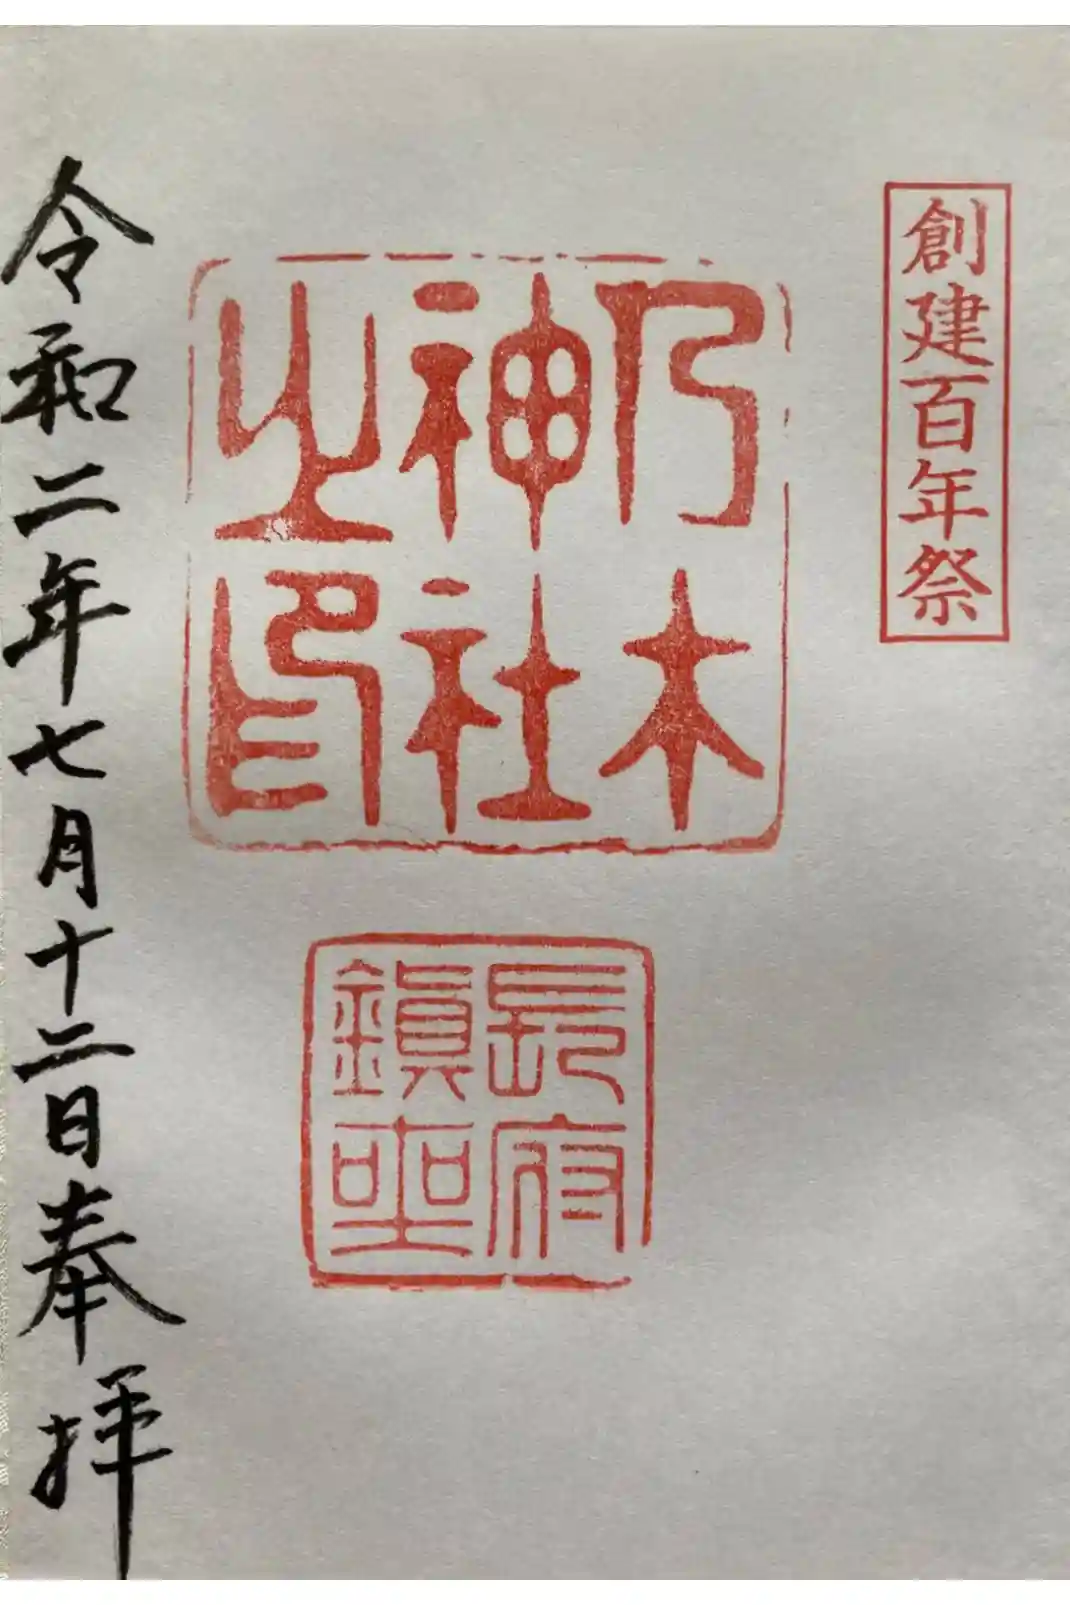 創建百年祭
乃木
神社
之印
長府
鎮座
令和二年七月十二日奉拝